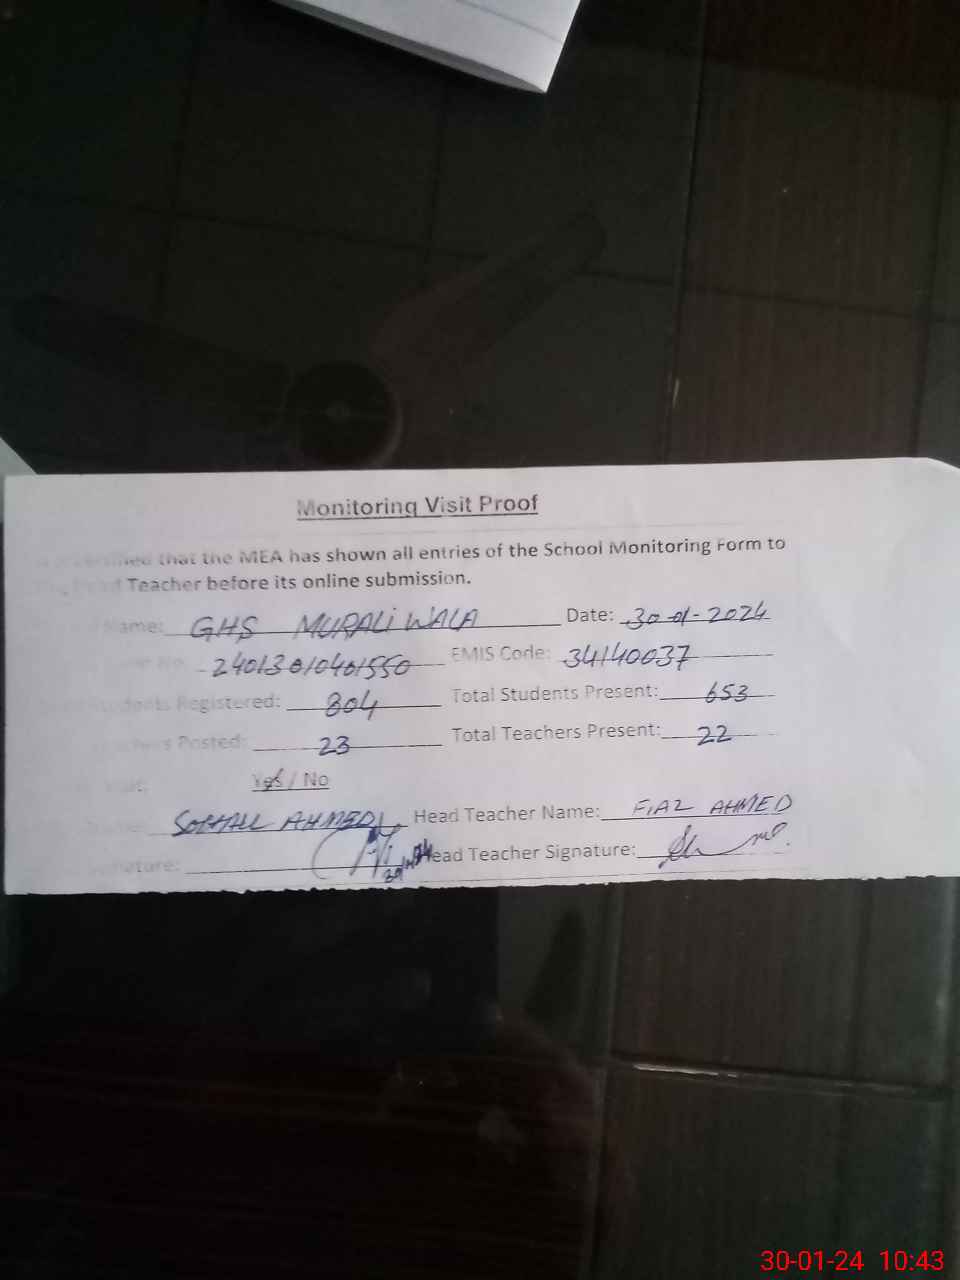 Monitoring Visit Proof
that the MEA has shown all entries of the School Monitoring Form to
Teacher before its online submission.
Name: GHS MURALI WALA Date: 30-01-2024
EMIS Code: 34140037
Students Registered: 804 Total Students Present: 653
Posted: 23 Total Teachers Present: 22
Yes / No
SOHAIL AHMED Head Teacher Name: FIAZ AHMED
Signature: Head Teacher Signature:
30-01-24 10:43